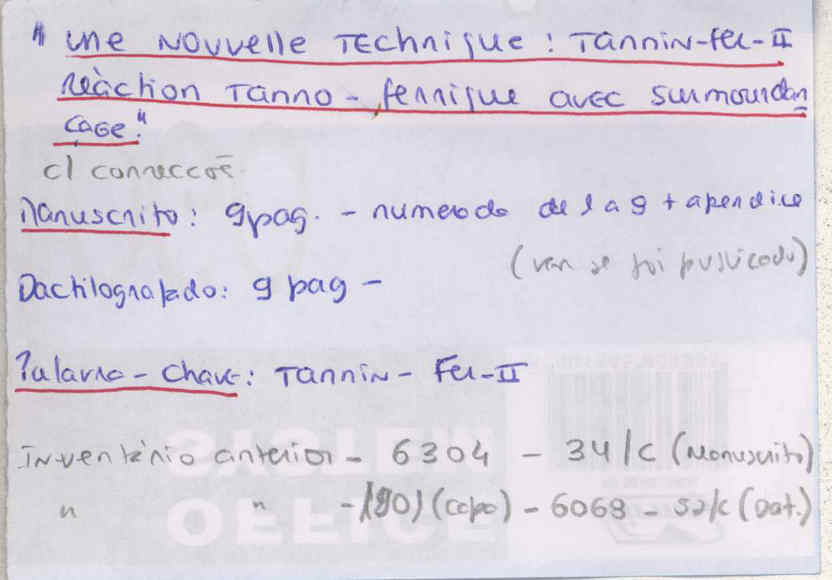 "Une Nouvelle Technique : Tannin-fer-II
réaction Tanno-ferrique avec surmordan
cage"
c/ correccoẽ
Manuscrito: 9 pag. - numerado de 1 a 9 + apendice
(ver se foi publicado)
Dactilografado: 9 pag -
Palavra-chave: Tannin-Fer-II
Inventário anterior - 6304 - 34/C (Manuscrito)
" " - (capa) - 6068 - 52/C (Dat.)
OFFICE
SYSTEM